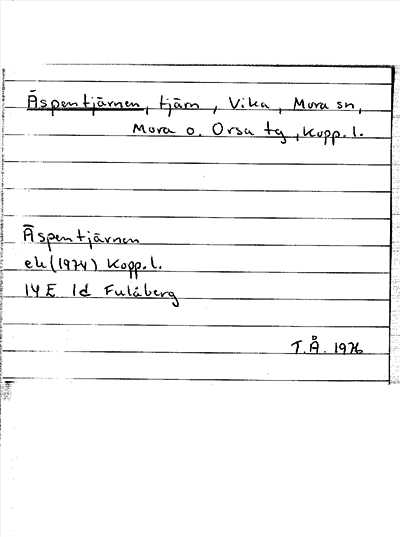 Äspentjärnen, tjärn, Vika, Mora sn,
Mora o. Orsa tg, Kopp. l.
Äspentjärnen
ek (1974) Kopp. l.
14 E 1d Fulåberg
T.Å. 1976